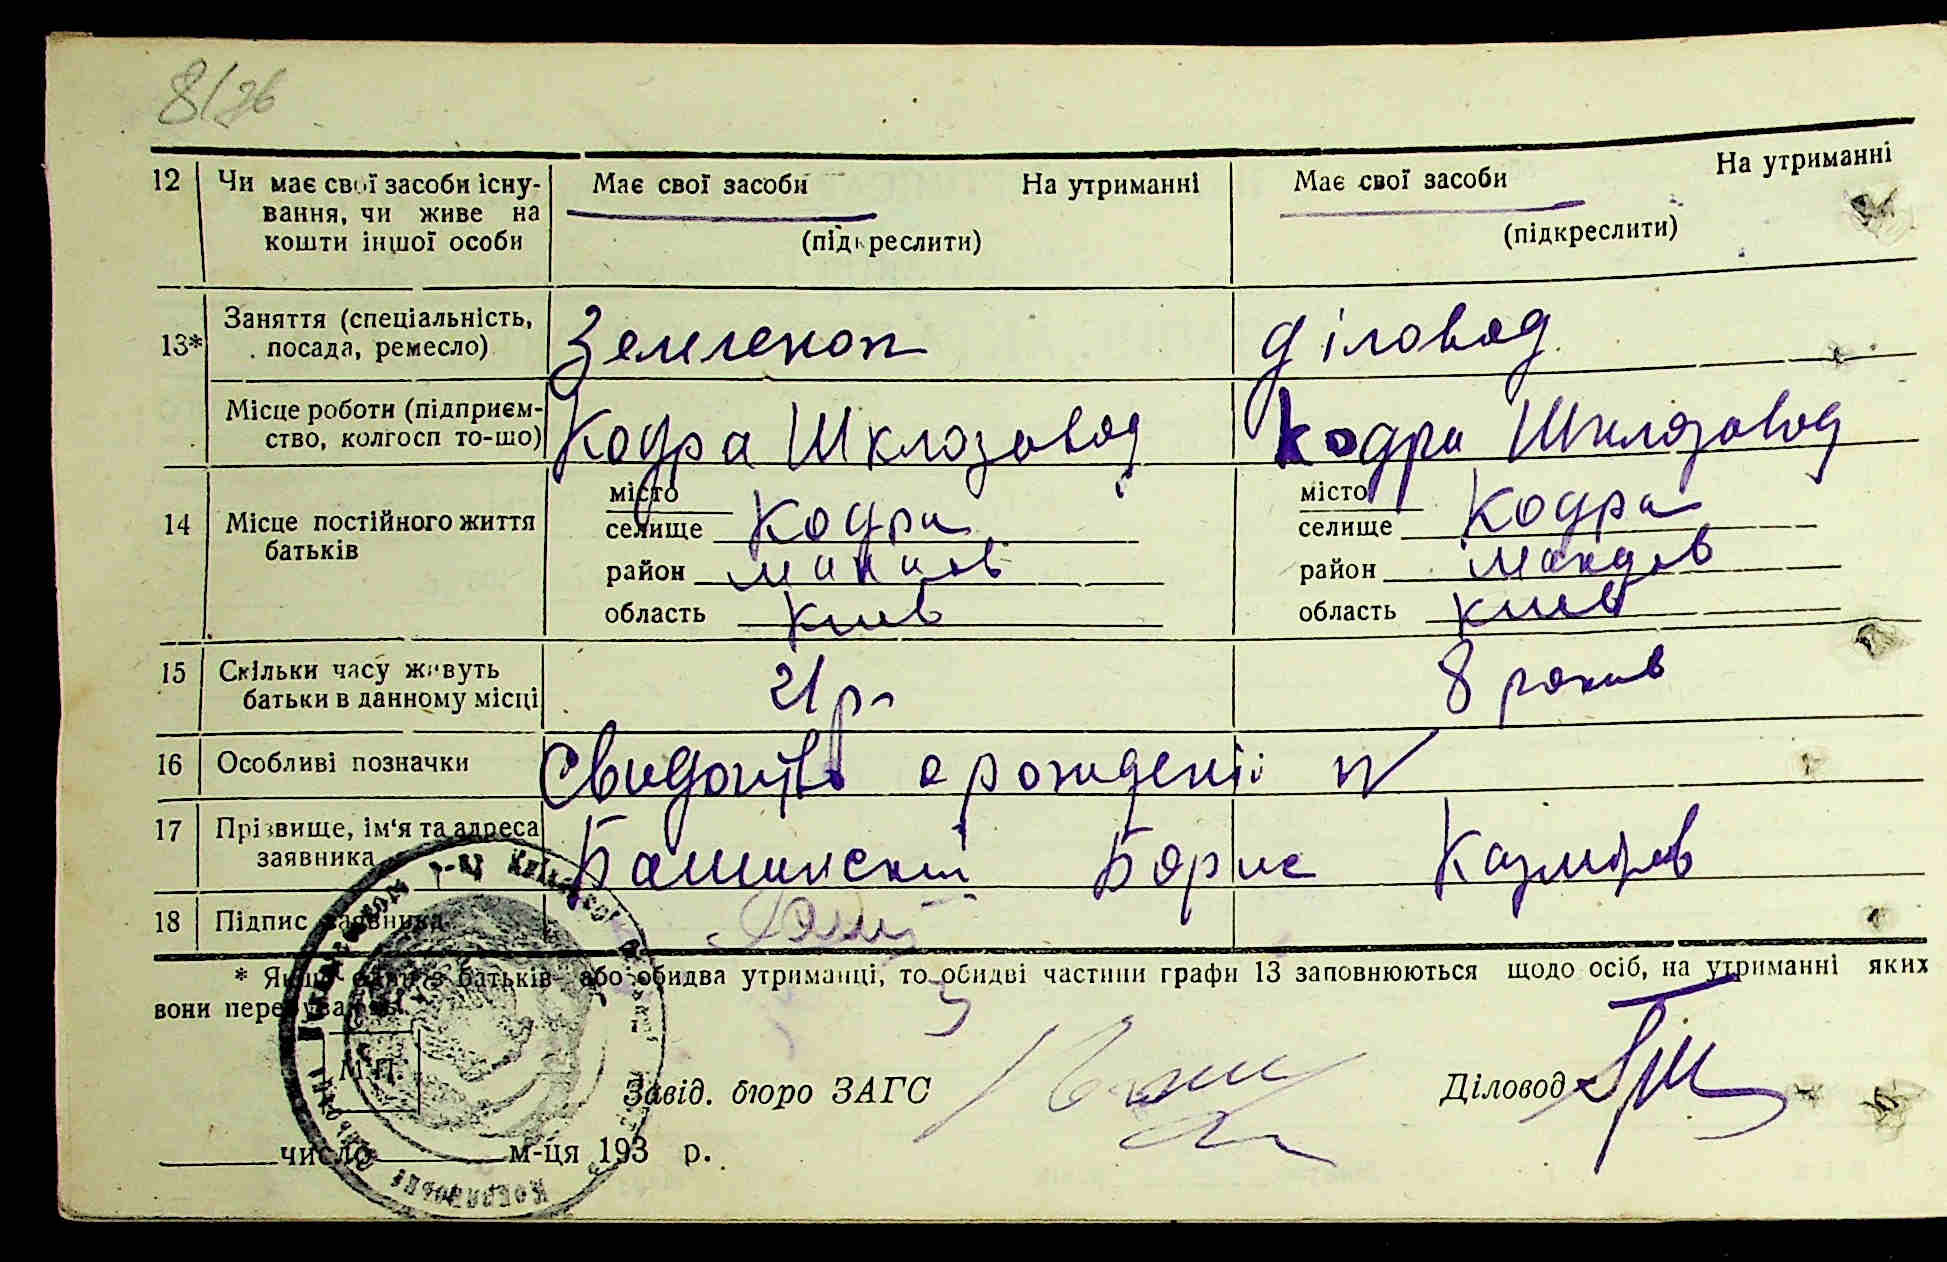 8/36
12 Чи має свої засоби існу- Має свої засоби На утриманні Має свої засоби На утриманні
вання, чи живе на
кошти іншої особи (підкреслити) (підкреслити)
13* Заняття (спеціальність, Землекоп Діловод
посада, ремесло)
Місце роботи (підприєм- Кодра Шклозавод Кодра Шклозавод
ство, колгосп то-що)
місто місто
14 Місце постійного життя селище Кодра селище Кодра
батьків район район
область Киев область Киев
15 Скільки часу живуть 21 р. 8 років
батьки в данному місці
16 Особливі позначки Свидоцтво о рожденіі
17 Прізвище, ім'я та адреса Башинскій Борис Казміров
заявника
18 Підпис заявника
* Якщо один з батьків або обидва утриманці, то обидві частини графи 13 заповнюються щодо осіб, на утриманні яких
вони перебувають.
М.П.
Завід. бюро ЗАГС Діловод
число м-ця 193 р.